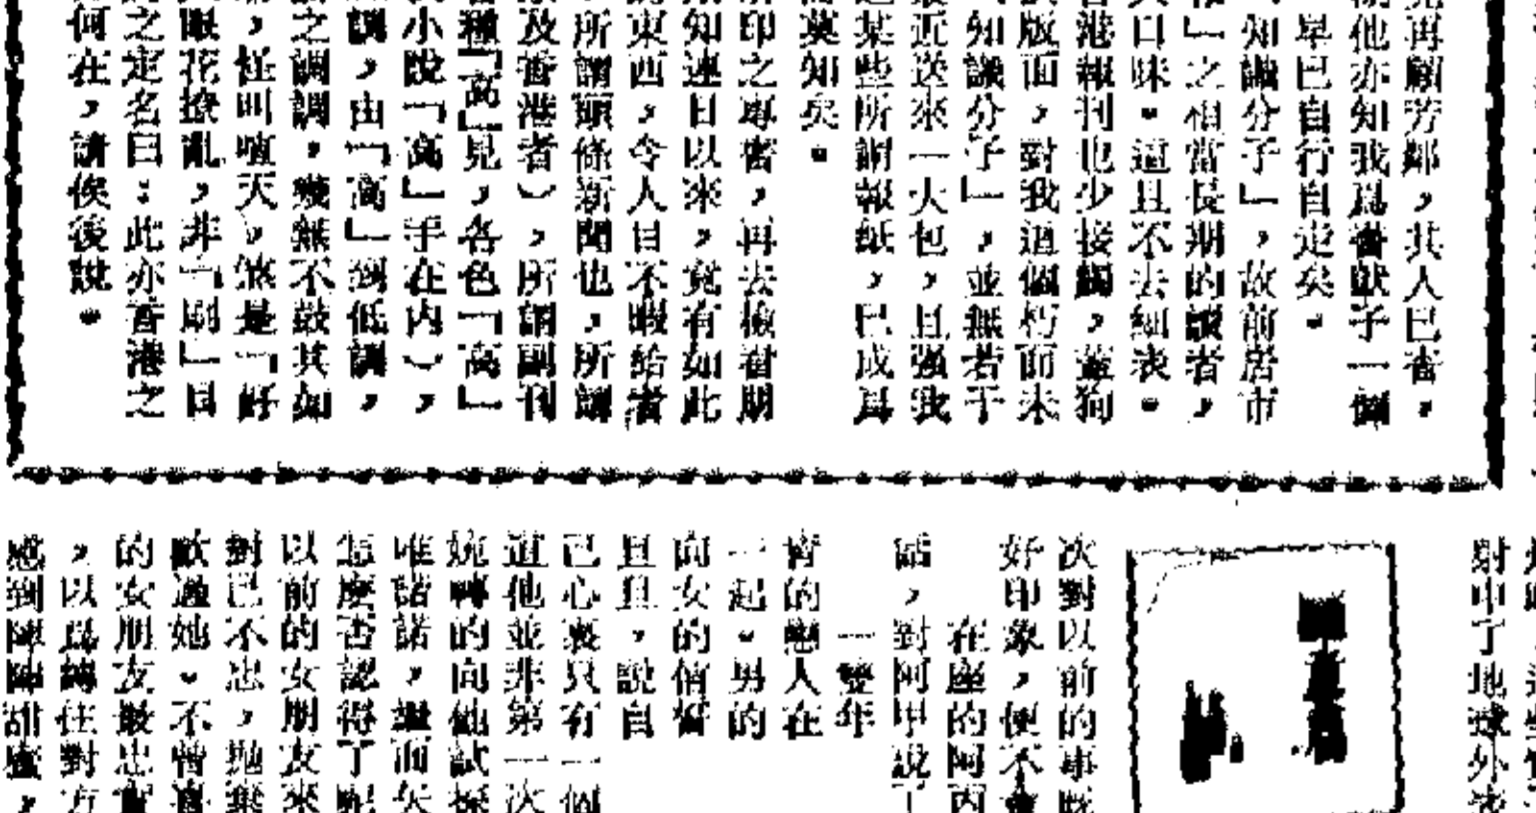 再顧芳鄰，其人已杳，
他亦知我爲書獃子一個
早已自行自定矣。
知識分子」，故前居市
」之相當長期的讀者，
口味。這且不去細表。
港報刊也少接觸，蓋狗
版面，對我這個朽而未
知識分子」，並無若干
近送來一大包，且强我
某些所謂報紙，已成爲
莫知矣。
印之專書，再去檢看朋
知連日以來，竟有如此
東西，令人目不暇給者
所謂頭條新聞也，所謂
及香港者），所謂副刊
種「高」見，各色「高」
小說「高」手在內），
調，由「高」到低調，
之調調，幾無不鼓其如
，怪叫喧天，煞是「好
眼花撩亂，非「刷」目
之定名曰：此亦香港之
何在，請俟後說。
射中了地球外
次對以前的事
好印象，便不會
在座的阿丙
話，對阿甲說
一雙年
青的戀人在
一起。男的
向女的信誓
且且，說自
己心裏只有一個
道他並非第一次
婉轉的向他試探
唯諾諾，繼而矢
怎麼否認得了呢
以前的女朋友來
對已不忠，拋棄
歡過她。不曾喜
的女朋友最忠實
，以爲纏住對方
感到陣陣甜蜜，